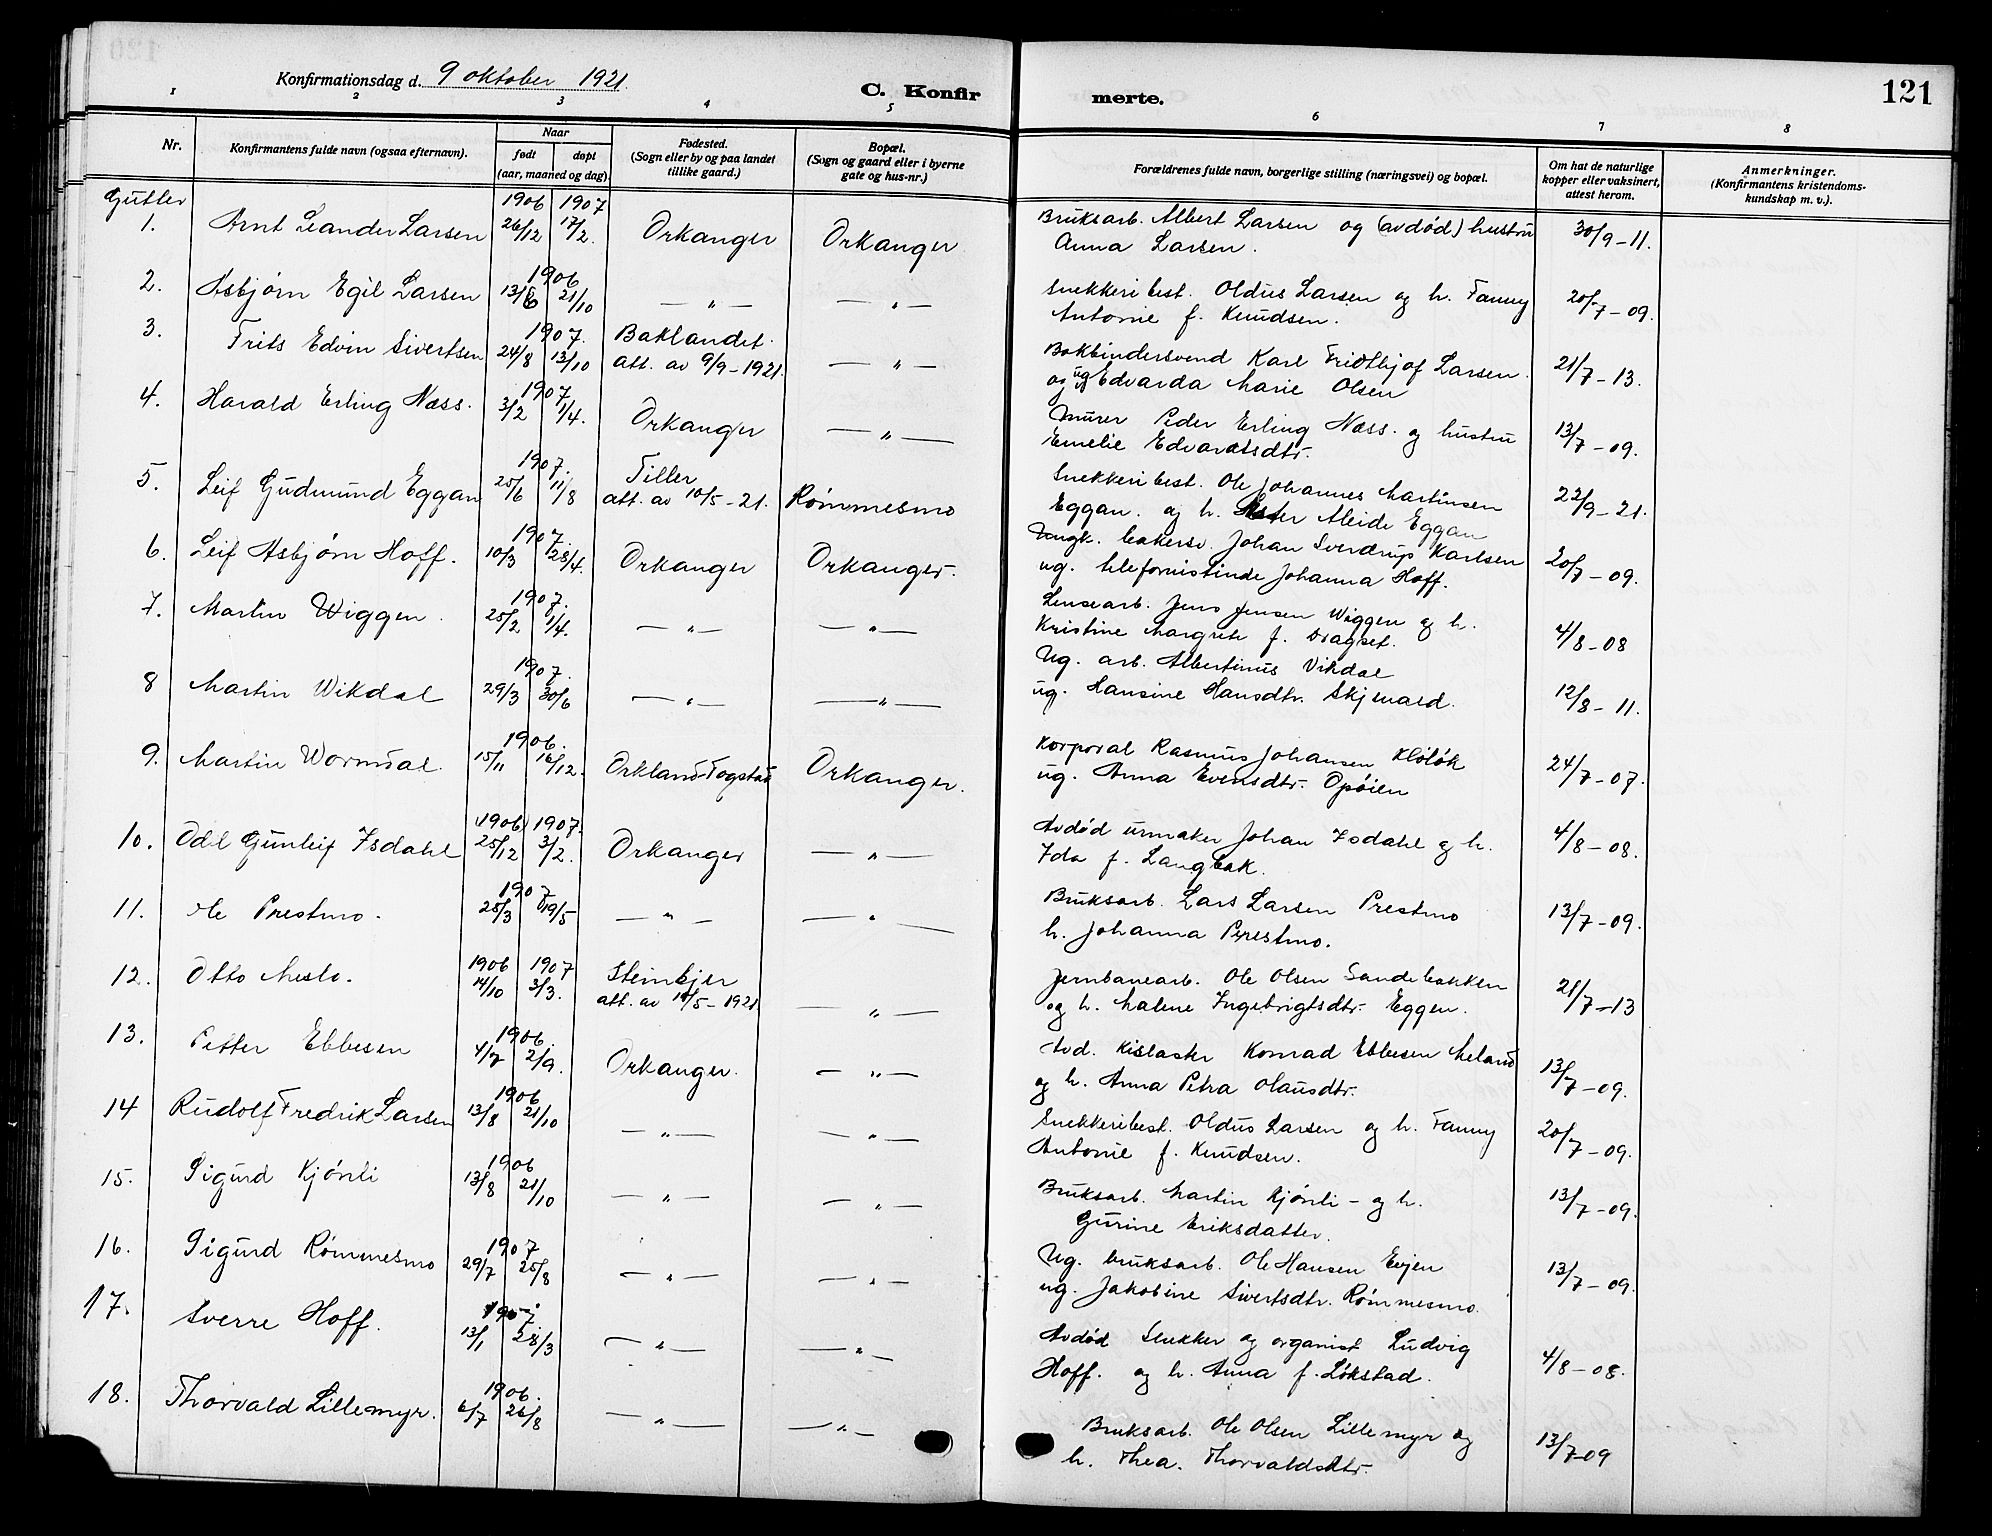 121
Konfirmationsdag d. 9 oktober 1921.
C. Konfir
merte.
1 2 3 4 5 6 7 8
Nr.
Konfirmantens fulde navn (ogsaa efternavn).
Naar
født
døpt
(aar, maaned og dag).
Fødested.
(Sogn eller by og paa landet
tillike gaard.)
Bopæl.
(Sogn og gaard eller i byerne
gate og hus-nr.)
Forældrenes fulde navn, borgerlige stilling (næringsvei) og bopæl.
Om hat de naturlige
kopper eller vaksinert,
attest herom.
Anmerkninger.
(Konfirmantens kristendoms-
kundskap m. v.).
Gutter
1906 1907
1. Arnt Leander Larsen 26/12 17/2. Orkanger Orkanger Bruksarb. Albert Larsen og (avdød) hustru 30/9-11.
Anna Larsen.
1906
2. Asbjørn Egil Larsen 13/8 21/10 — " — — " — Snekkeribest. Oldus Larsen og h. Fanny 20/7-09.
Antonie f. Knudsen.
1907.
3. Frits Edvin Sivertsen 24/8 13/10 Baklandet. — " — Bokbindersvend Karl Fridthjof Larsen. 21/7-13.
att. av 9/9-1921.
og ug Edvarda Marie Olsen
1907
4. Harald Erling Næss. 3/2 1/4. Orkanger — " — Murer Peder Erling Næss. og hustru 13/7-09.
Emelie Edvardsdtr.
1907.
5. Leif Gudmund Eggan 25/6 11/8 Tiller Rømmesmo Snekkeribest. Ole Johannes Martinsen 22/9-21.
att. av 10/5-21.
Eggan. og h. Aleide Eggan
1907.
6. Leif Asbjørn Hoff. 10/3 28/4. Orkanger Orkanger. Ungk. bakersv. Johan Sverdrup Karlsen 20/7-09.
ug. telefonistinde Johanna Hoff.
1907.
7. Martin Wiggen. 25/2 1/4. — " — — " — Lensearb. Jens Jensen Wiggen og h. 4/8-08
Kristine Margrete f. Dragset.
1907.
8 Martin Wikdal 29/3 30/6 — " — — " — Ug. arb. Albertinus Vikdal 12/8-11.
ug. Hansine Hansdtr. Skjenald.
1906.
9. Martin Wormdal. 15/11 16/12. Orkland Fogstad Orkanger. Korporal Rasmus Johansen 24/7-07.
ug. Anna Evensdtr. Opøien
1906 1907.
10. Odd Gunleif Isdahl 25/12 3/2. Orkanger — " — Avdød urmaker Johan Isdahl og h. 4/8-08.
Ida f. Langbak.
1907
11. Ole Prestmo. 25/3 19/5 — " — — " — Bruksarb. Lars Larsen Prestmo 13/7-09.
h. Johanna Prestmo.
1906 1907
12. Otto Meslo. 14/10 3/3. Steinkjer — " — Jernbanearb. Ole Olsen Sandebakken 21/7-13
att. av 10/5-1921
og h. Malene Ingebrigtsdtr. Eggen.
1906.
13. Petter Ebbesen 4/7 2/9. Orkanger. — " — Avd. Konrad Ebbesen Meland 13/7-09.
og h. Anna Petra Olausdtr.
1906
14 Rudolf Fredrik Larsen 13/8 21/10 — " — — " — Snekkeribest. Oldus Larsen og h. Fanny 20/7-09.
Antonie f. Knudsen.
1906
15. Sigurd Kjønli 13/8 21/10 — " — — " — Bruksarb. Martin Kjønli – og h. 13/7-09.
Gurine Eriksdatter.
1907
16. Sigurd Rømmesmo 29/7 25/8 — " — — " — Ug. bruksarb. Ole Hansen Evjen 13/7-09.
ug. Jakobine Sivertsdtr. Rømmesmo.
1907.
17. Sverre Hoff. 13/1 28/3 — " — — " — Avdød Snekker og organist Ludvig 4/8-08.
Hoff. og h. Anna f. Løkstad.
1906.
18. Thorvald Lillemyr. 6/7 26/8 — " — — " — Bruksarb. Ole Olsen Lillemyr og 13/7-09
h. Thea. Thorvaldsdtr.